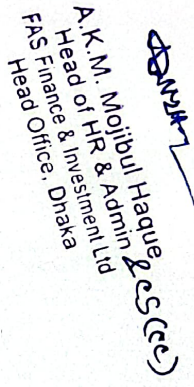 A.K.M. Mojibul Haque
Head of HR & Admin & CS (CC)
FAS Finance & Investment Ltd
Head Office, Dhaka